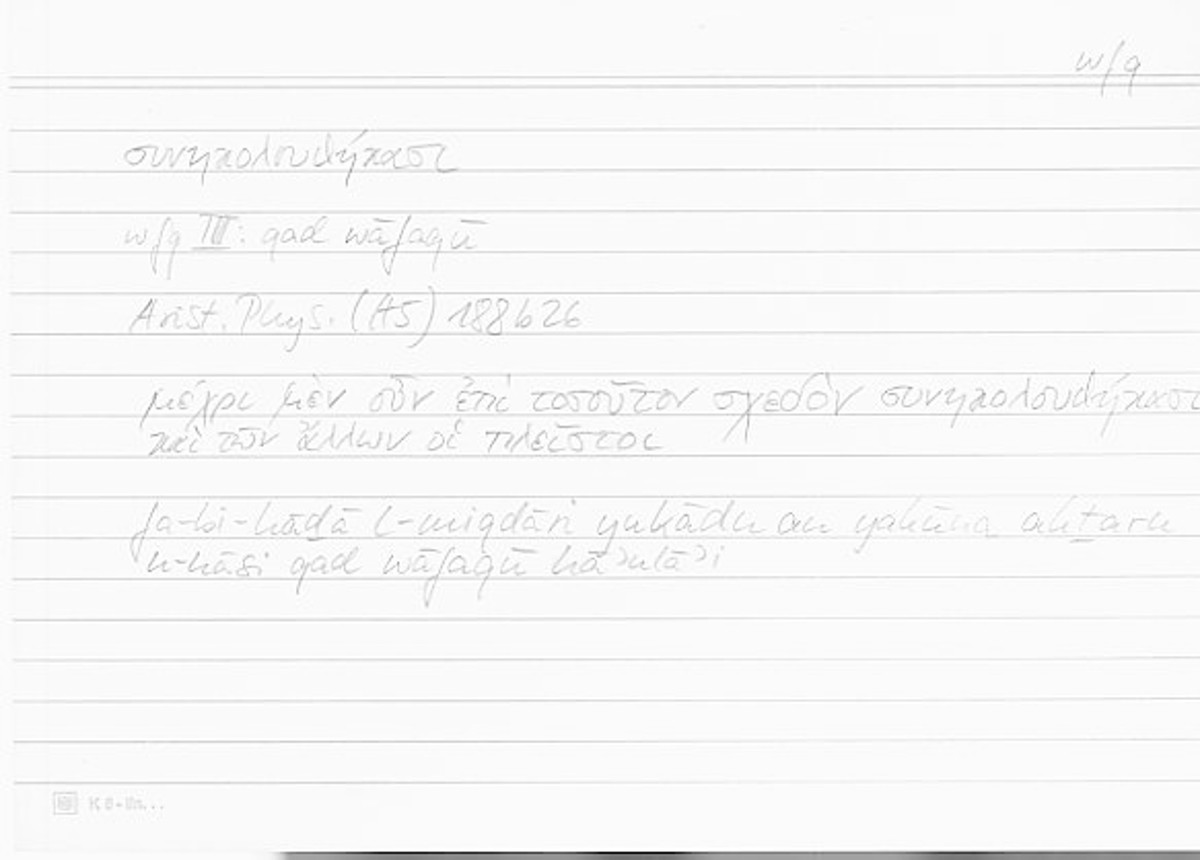 w/q
συνηκολουθήκασι
wfq III: qad wāfaqū
Arist. Phys. (A5) 188b26
μέχρι μὲν οὖν ἐπὶ τοσοῦτον σχεδὸν συνηκολουθήκασι
καὶ τῶν ἄλλων οἱ πλεῖστοι
fa-bi-hāḏā l-miqdāri yakādu an yakūna akṯaru
n-nāsi qad wāfaqū hāʾulāʾi